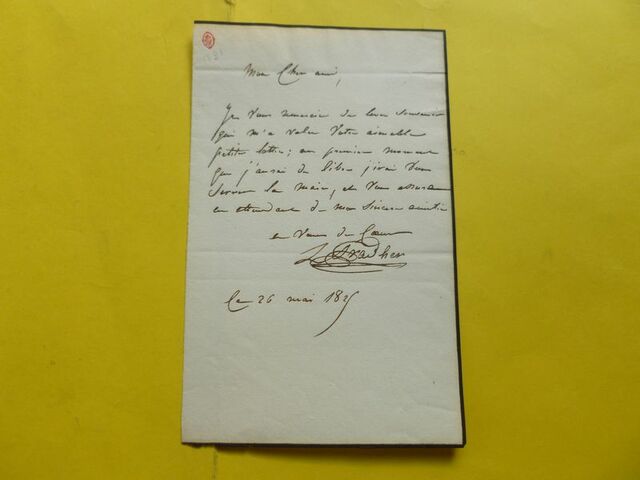 Mon Cher ami,
Je vous remercie du bon souvenir
qui m'a valu votre aimable
petite lettre; au premier moment
que j'aurai de libre j'irai vous
serrer la main, et vous assurer
en attendant de mon sincère amitié
et vous du Cœur
Le 26 mai 182